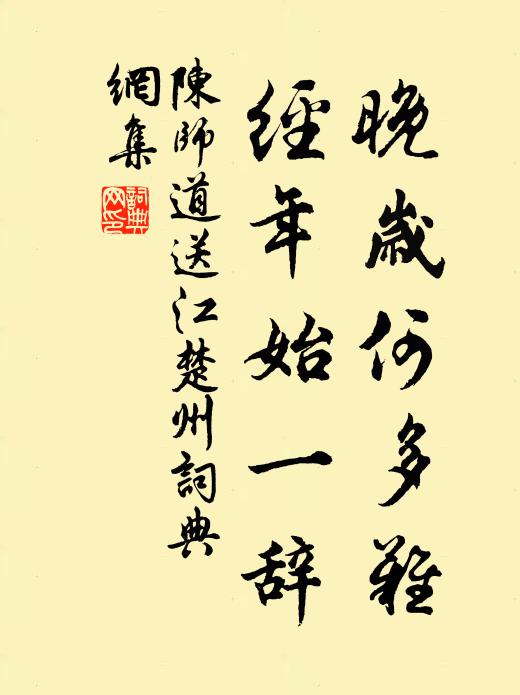 晚歲何多難
經年始一辞
陳師道送江楚州詞典
網集
詞典
网印